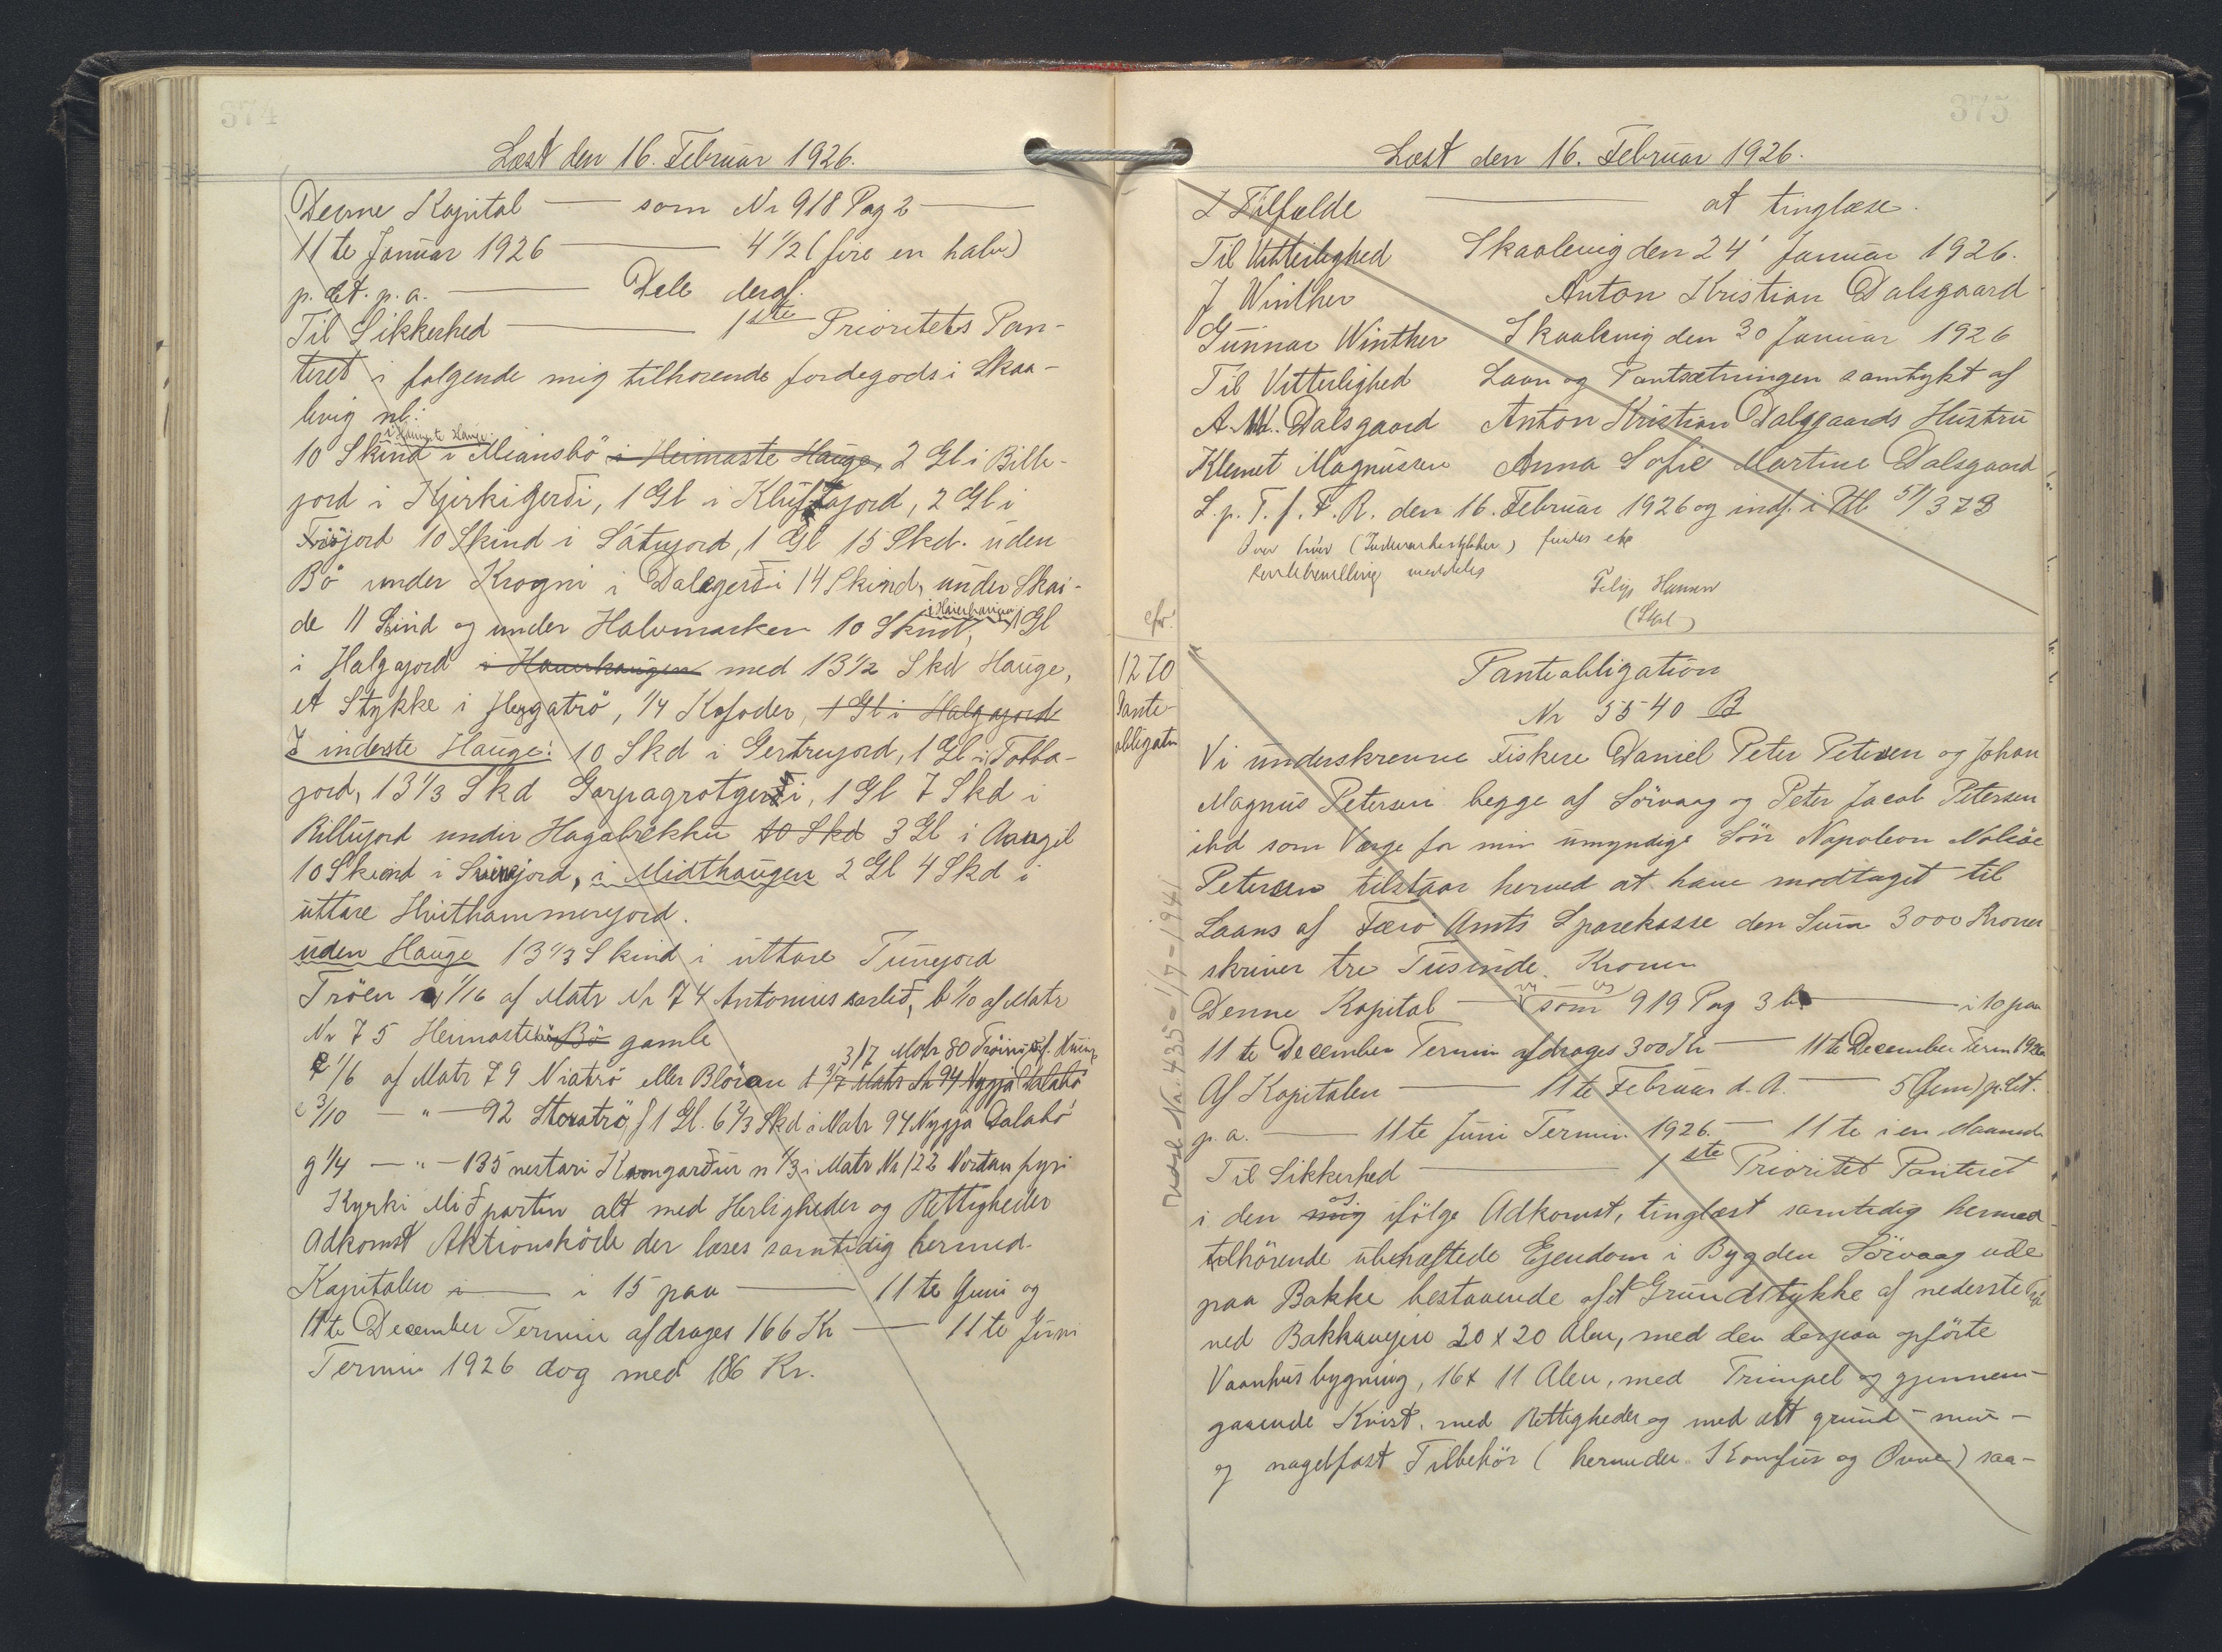 374
Læst den 16. Februar 1926.
Denne Kapital — som Nr 918 Pag 2 —
11te Januar 1926 — 4 1/2 (fire en halv)
p. Ct. p. a. — Dele deraf.
Til Sikkerhed — 1ste Prioritets Pan-
teret i følgende mig tilhørende Jordegods i Skaa-
levig nl:
i Heimaste Hauge:
10 Skind i Meansbö i Heimaste Hauge, 2 Gl i Bille-
jord i Kjirkigerði, 1 Gl i Kluftajord, 2 Gl i
Frisjord 10 Skind i Sátujord, 1 Gl 15 Skd. uden
Bö under Krogni i Dalegerði 14 Skind, under Skai-
de 11 Skind og under Halvmarken 10 Skind, i Hauerhaugen 1 Gl
i Halgajord i Hauerhaugen med 13 1/2 Skd Hauge,
et Stykke i Heygatrö, 1/4 Kofoder, 1 Gl i Halgajord
I inderste Hauge: 10 Skd i Gertrujord, 1 Gl i Tobba-
jord, 13 1/3 Skd Garpagrotgerði, 1 Gl 7 Skd i
Billujord undir Hagabrekku 10 Skd 3 Gl i Aargil
10 Skind i Svinjord, i Midthaugen 2 Gl 4 Skd i
uttare Hvithammerjord.
uden Hauge 13 1/3 Skind i uttare Tunejord
Tröen a 1/16 af Matr Nr 74 Antonius karled, b 1/10 af Matr
Nr 75 Heimaste Bö gamle
3/7 Matr 80 Tröini
c 1/6 af Matr 79 Niatrö eller Bloran d 3/7 Matr Nr 94 Nyggja Dalabö
e 3/10 — " — 92 Storatrö, f 1 Gl. 6 2/3 Skd i Matr 94 Nyggja Dalabö
g 1/4 — " — 135 nestari Kamgarður n 1/3 i Matr Nr 122 Nordan fyri
Kyrki Miðpartin alt med Herligheder og Rettigheder
Adkomst Aktionsköde der læses samtidig hermed.
Kapitalen i — i 15 paa — 11te Juni og
11te December Termin afdrages 166 Kr — 11te Juni
Termin 1926 dog med 186 Kr.
375
Læst den 16. Februar 1926.
I Tilfælde — at tinglæse.
Til Vitterlighed Skaalevig den 24' Januar 1926.
J Winther Anton Kristian Dalsgaard
Gunnar Winther Skaalevig den 30 Januar 1926
Til Vitterlighed Laan og Pantsætningen samtykt af
A. M. Dalsgaard Anton Kristian Dalsgaards Hustru
Klemet Magnussen Anna Sofie Martine Dalsgaard
L. p. T. f. F. R. den 16. Februar 1926 og indf. i Ptl 51/373
findes ej
meddeles
Filip Hansen
cfr.
1270
Pante-
obligatn
Panteobligation
Nr 5540 B
Vi underskrevne Fiskere Daniel Peter Petersen og Johan
Magnus Petersen begge af Sörvaag og Peter Jacob Petersen
ibd som Værge for min umyndige Sön Napoleon Nolsöe
Petersen tilstaar herved at have modtaget til
Laans af Færö Amts Sparekasse den Sum 3000 Kroner
skriver tre Tusinde Kroner
Denne Kapital — som 919 Pag 3 b — i 10 paa
11te December Termin afdrages 300 Kr — 11te December Term 1926
Af Kapitalen — 11te Februar d. A. — 5 (fem) p. Ct.
p. a. — 11te Juni Termin 1926. — 11te i en Maaned
Til Sikkerhed — 1ste Prioritet Panteret
i den mig os ifölge Adkomst, tinglæst samtidig hermed
tilhörende ubehæftede Ejendom i Bygden Sörvaag ude
paa Bakke bestaaende af et Grundstykke af nederste Trö
ved Bakkaugun 20 x 20 Alen, med den derpaa opförte
Vaanhusbygning, 16 x 11 Alen, med Trimpel og gjennem-
gaaende Kvist, med Rettigheder og med alt grund- mur-
og nagelfast Tilbehör (herunder Komfur og Ovne) saa-
Udsl. Nr. 435 - 1/7 - 1941